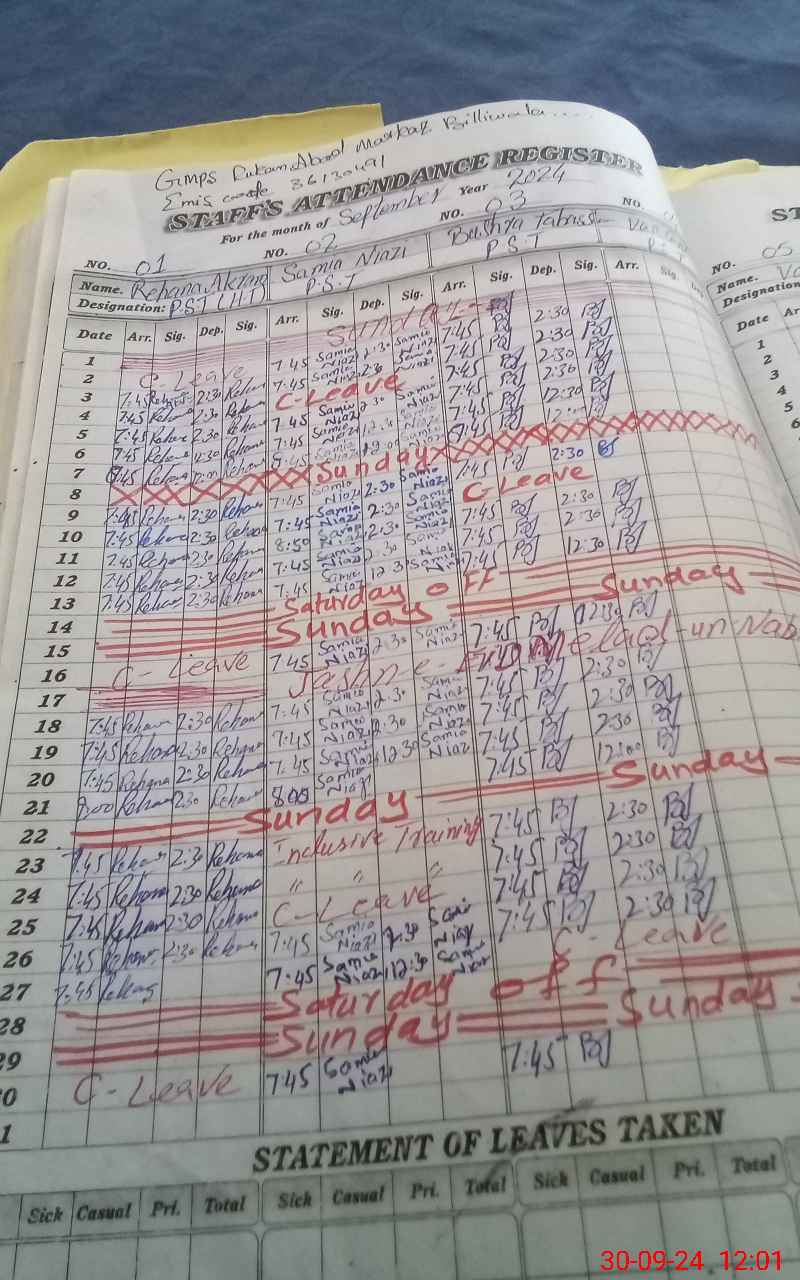 GMPS Rukan Abad Markaz Billiwala....
Emis code 36130491
STAFF'S ATTENDANCE REGISTER
For the month of September Year 2024
NO. 01 NO. 02 NO. 03 NO.
Name. Rehana Akram Samia Niazi Bushra
Designation: P.S.T (HT) P.S.T P.S.T
Date Arr. Sig. Dep. Sig. Arr. Sig. Dep. Sig. Arr. Sig. Dep. Sig. Arr. Sig.
1 Sunday
2 C-Leave 7:45 Samia Niazi 2:30 Samia Niazi 7:45 BJ 2:30 BJ
3 7:45 Rehana 2:30 Rehana 7:45 Samia Niazi 2:30 Samia Niazi 7:45 BJ 2:30 BJ
4 7:45 Rehana 2:30 Rehana C-Leave 7:45 BJ 2:30 BJ
5 7:45 Rehana 2:30 Rehana 7:45 Samia Niazi 2:30 Samia Niazi 7:45 BJ 2:30 BJ
6 7:45 Rehana 2:30 Rehana 7:45 Samia Niazi Samia Niazi 7:45 BJ 12:30 BJ
7 Rehana Rehana
8 Sunday
9 7:45 Rehana 2:30 Rehana 7:45 Samia Niazi 2:30 Samia Niazi 7:45 BJ 2:30 BJ
10 7:45 Rehana 2:30 Rehana 7:45 Samia Niazi 2:30 Samia Niazi C-Leave
11 7:45 Rehana 2:30 Rehana 8:50 Samia Niazi 2:30 Samia Niazi 7:45 BJ 2:30 BJ
12 7:45 Rehana 2:30 Rehana 7:45 Samia Niazi 2:30 Samia Niazi 7:45 BJ 2:30 BJ
13 7:45 Rehana 2:30 Rehana 7:45 Samia Niazi 12:30 Samia Niazi 7:45 BJ 12:30 BJ
14 Saturday OFF
15 Sunday Sunday
16 C-Leave 7:45 Samia Niazi 2:30 Samia Niazi 7:45 BJ BJ
17 Jashn-e-Eid Melad-un-Nab
18 7:45 Rehana 2:30 Rehana 7:45 Samia Niazi 2:30 Samia Niazi 7:45 BJ 2:30 BJ
19 7:45 Rehana 2:30 Rehana 7:45 Samia Niazi 2:30 Samia Niazi 7:45 BJ 2:30 BJ
20 7:45 Rehana 2:30 Rehana 7:45 Samia Niazi 12:30 Samia Niazi 7:45 BJ 2:30 BJ
21 8:00 Rehana 2:30 Rehana 8:00 Samia Niazi 7:45 BJ 12:00 BJ
22 Sunday Sunday
23 7:45 Rehana 2:30 Rehana Inclusive Training 7:45 BJ 2:30 BJ
24 7:45 Rehana 2:30 Rehana " " " 7:45 BJ 2:30 BJ
25 7:45 Rehana 2:30 Rehana C-Leave 7:45 BJ 2:30 BJ
26 7:45 Rehana 2:30 Rehana 7:45 Samia Niazi 2:30 Samia Niazi 7:45 BJ 2:30 BJ
27 7:45 Rehana 7:45 Samia Niazi 12:30 Samia Niazi C-Leave
28 Saturday off
29 Sunday Sunday
0 C-Leave 7:45 Samia Niazi 7:45 BJ
1
STATEMENT OF LEAVES TAKEN
Sick Casual Pri. Total Sick Casual Pri. Total Sick Casual Pri. Total
ST
NO. 05
Name. Va
Designation
Date Ar
1
2
3
4
5
6
7
8
30-09-24 12:01